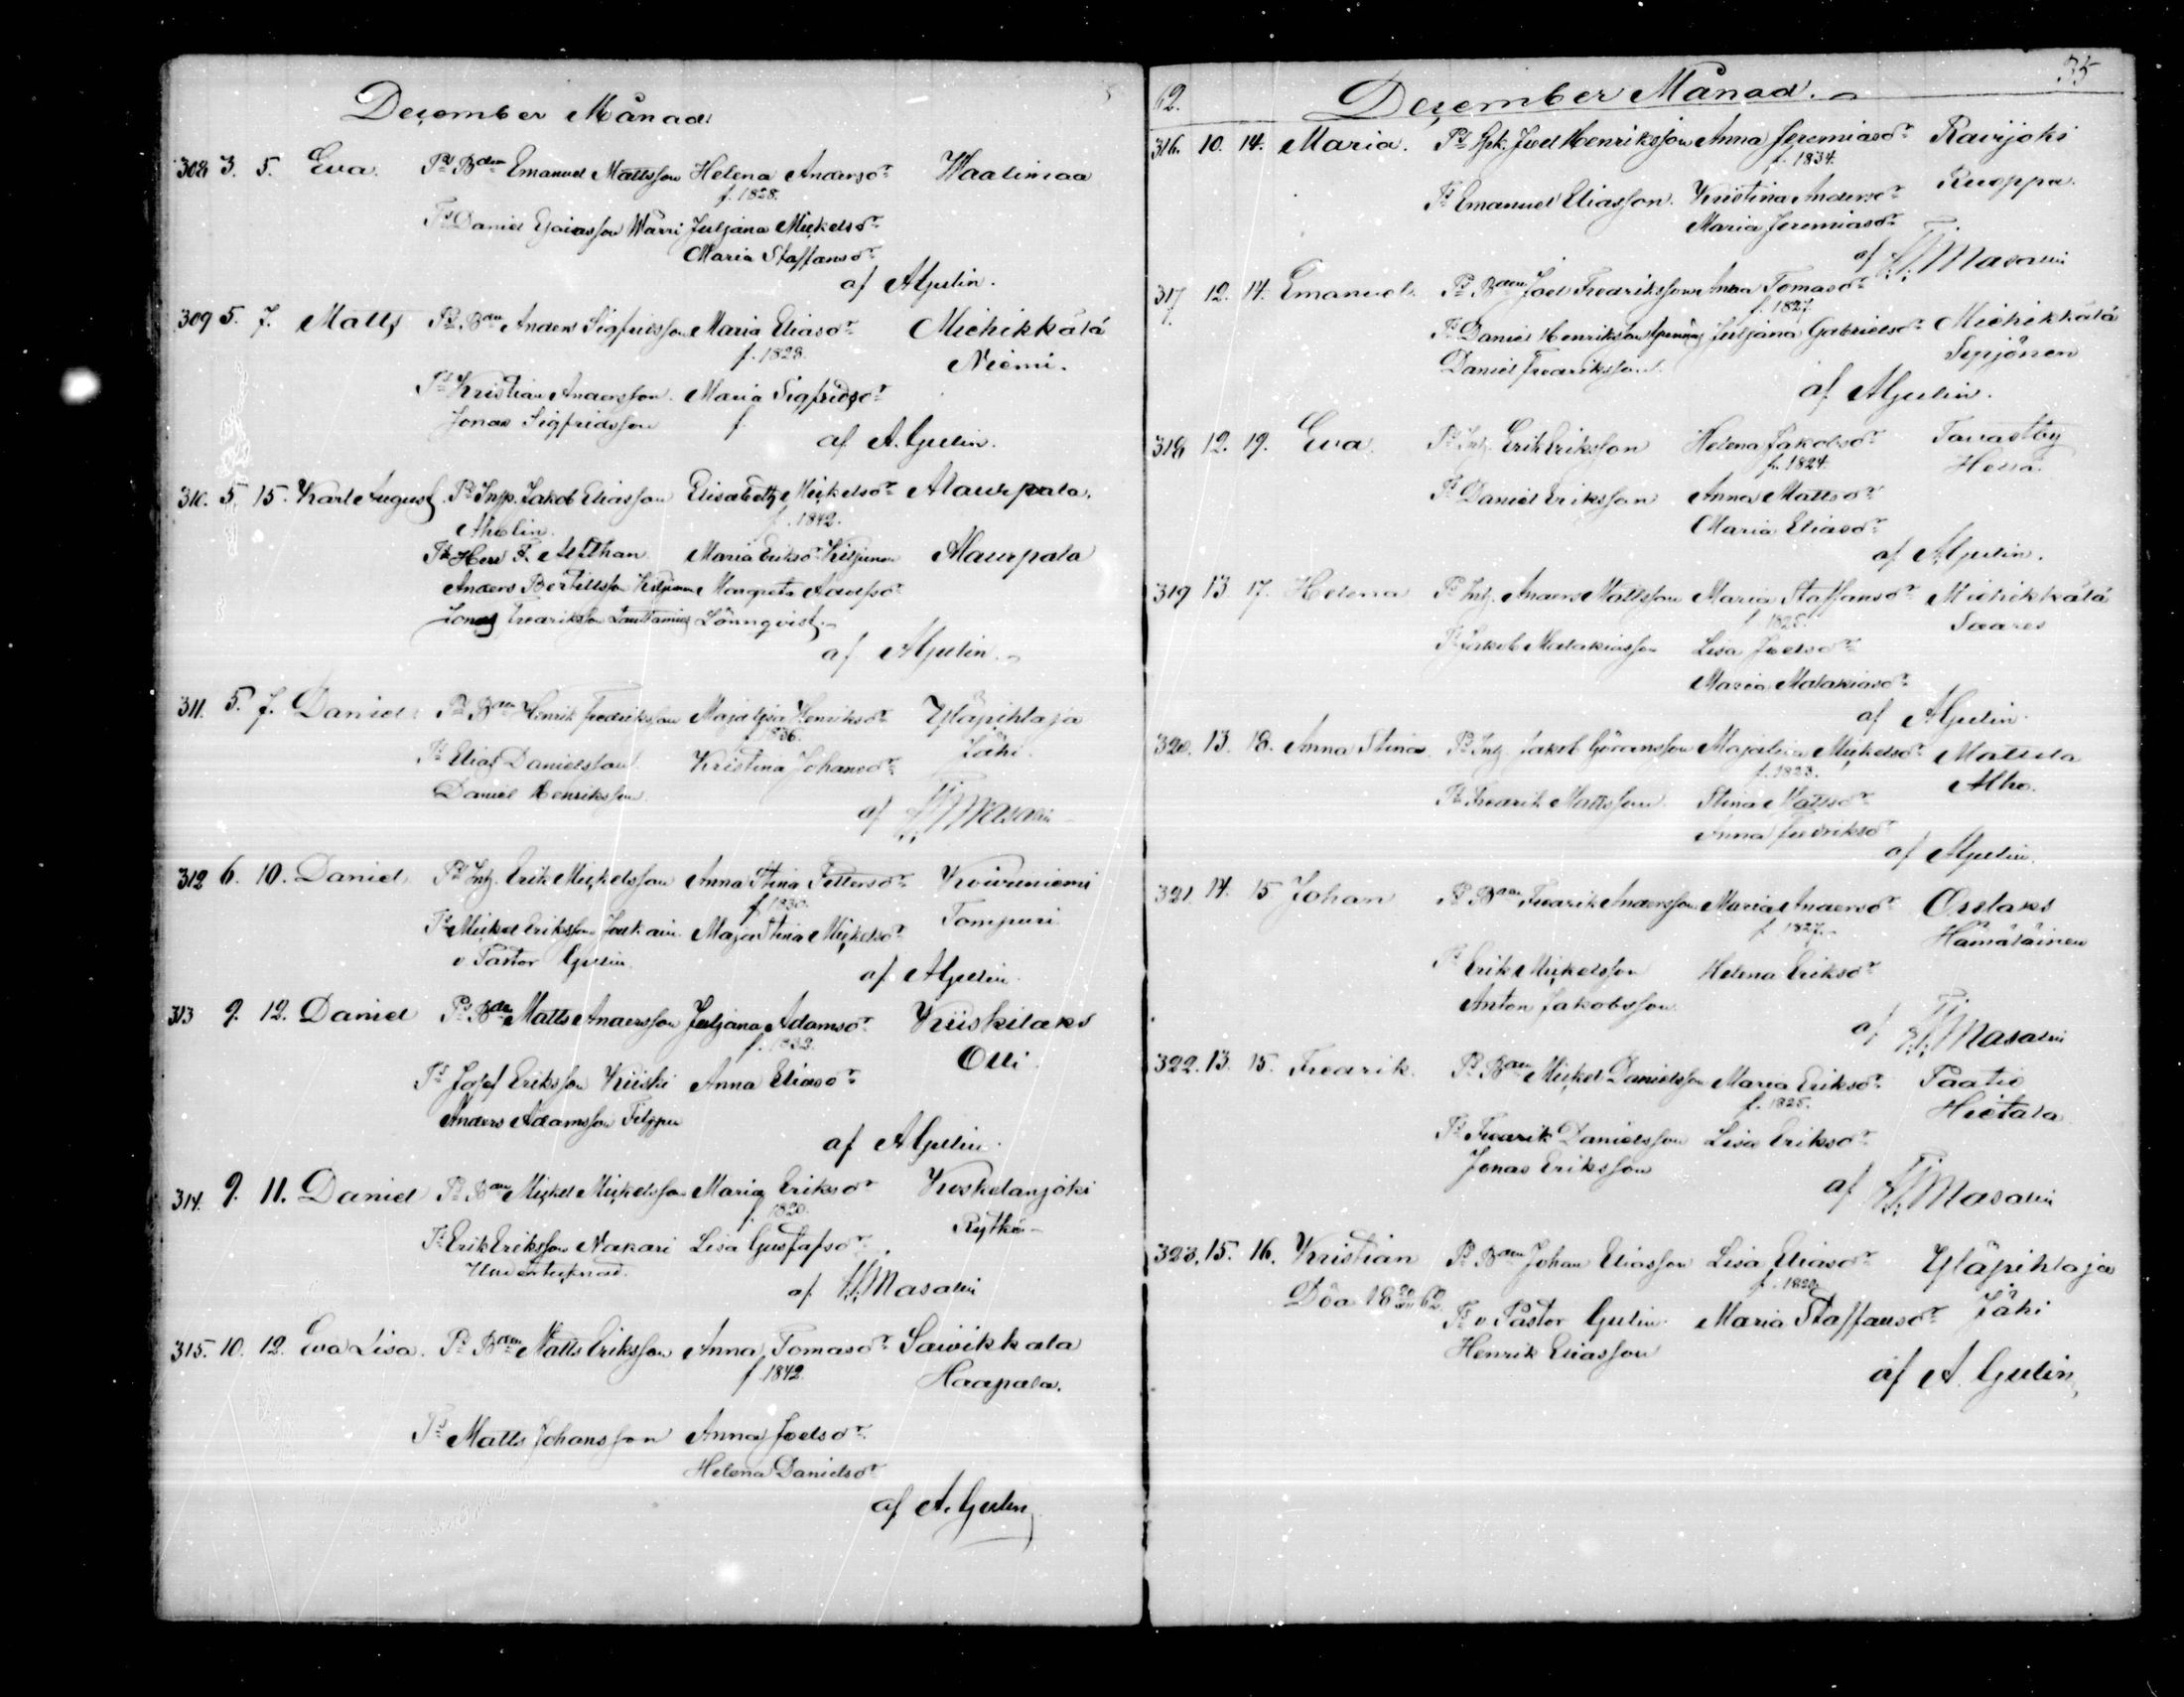 December Månad.
308 3. 5. Eva. Pr. Bdn Emanuel Mattsson Helena Andersdr Waalimaa
f. 1828.
Ts Daniel Esaiasson Warri Juljana Mickelsdr
Maria Staffansdr
af A Gulin.
309 5. 7. Matts Pr. Bdn Anders Sigfridsson Maria Eliasdr Miehikkälä
f. 1828. Niemi.
Ts Kristian Andersson. Maria Sigfridsdr
Jonas Sigfridsson f.
af A. Gulin.
310. 5. 15. Karl August Pr. Insp. Jakob Eliasson Elisabeth Mickelsdr Alaurpala.
Aholin. f. 1842.
Ts Herr F. Alfthan Maria Eriksdr Kilpinen Alaurpala
Anders Bertillsson Kilpinen Margreta Adolfsdr
Jonas Fredriksson Lönnqvist.
af A Gulin.
311. 5. 7. Daniel Pr. Bdn Henrik Fredriksson Maja Lisa Henriksdr Yläpihlaja
f. 1836. Jähi.
Ts Elias Danielsson Kristina Johansdr
Daniel Henriksson.
af Masalin
312 6. 10. Daniel Pr. Inh. Erik Mickelsson Anna Stina Pettersdr Koivuniemi
f. 1830. Tompuri
Ts Mickel Eriksson Maja Stina Mickelsdr
v. Pastor Gulin. af A Gulin.
313 9. 12. Daniel Pr. Bdn Matts Andersson Juljana Adamsdr Kiiskilaks
f. 1832. Olli.
Ts Josef Eriksson Kiiski Anna Eliasdr
Anders Adamsson Filppu
af A Gulin.
314. 9. 11. Daniel Pr. Bdn Mickel Mickelsson Maria Eriksdr Koskelanjoki
f. 1820. Rytkö
Ts Erik Eriksson Nakari Lisa Gustafsdr
Undertecknad. af Masalin
315. 10. 12. Eva Lisa. Pr. Bdn Matts Eriksson Anna Tomasdr Saivikkala
f. 1842. Haapala.
Ts Matts Johansson Anna Joelsdr
Helena Danielsdr
af A. Gulin
62. December Månad. 35
316. 10. 14. Maria. Pr. Joel Henriksson Anna Jeremiasdr Ravijoki
f. 1834. Ruoppa.
Ts Emanuel Eliasson. Kristina Andersdr
Maria Jeremiasdr
af Masalin
317. 12. 14. Emanuel. Pr. Bdn Joel Fredriksson Anna Tomasdr
f. 1827 Miehikkälä
Ts Daniel Henriksson Juljana Gabrielsdr Seppänen
Daniel Fredriksson.
af A Gulin.
318 12. 19. Eva. Pr. Inh. Erik Eriksson Helena Jakobsdr Tavastby
f. 1824. Heisa.
Ts Daniel Eriksson Anna Mattsdr
Maria Eliasdr
af A Gulin.
319 13. 17. Helena Pr. Inh. Anders Mattsson Maria Staffansdr Miehikkälä
f. 1825. Saares
Ts Jakob Malakiasson Lisa Joelsdr
Maria Malakiasdr
af A Gulin.
320. 13. 18. Anna Stina Pr. Inh. Jakob Göransson Maja Lisa Mickelsdr Mattila
f. 1823. Alho.
Ts Fredrik Mattsson Stina Mattsdr
Anna Fredriksdr
af A Gulin.
321. 14. 15 Johan Pr. Bdn Fredrik Andersson Maria Andersdr Orslaks
f. 1827. Hämäläinen
Ts Erik Mickelsson Helena Eriksdr
Anton Jakobsson.
af Masalin
322. 13. 15. Fredrik. Pr. Bdn Mickel Danielsson Maria Eriksdr Paatio
f. 1825. Hietala
Ts Fredrik Danielsson Lisa Eriksdr
Jonas Eriksson
af Masalin
323. 15. 16. Kristian Pr. Bdn Johan Eliasson Lisa Eliasdr Yläpihlaja
Död 18 62. f. 1820 Jähi
Ts v. Pastor Gulin. Maria Staffansdr
Henrik Eliasson
af A. Gulin